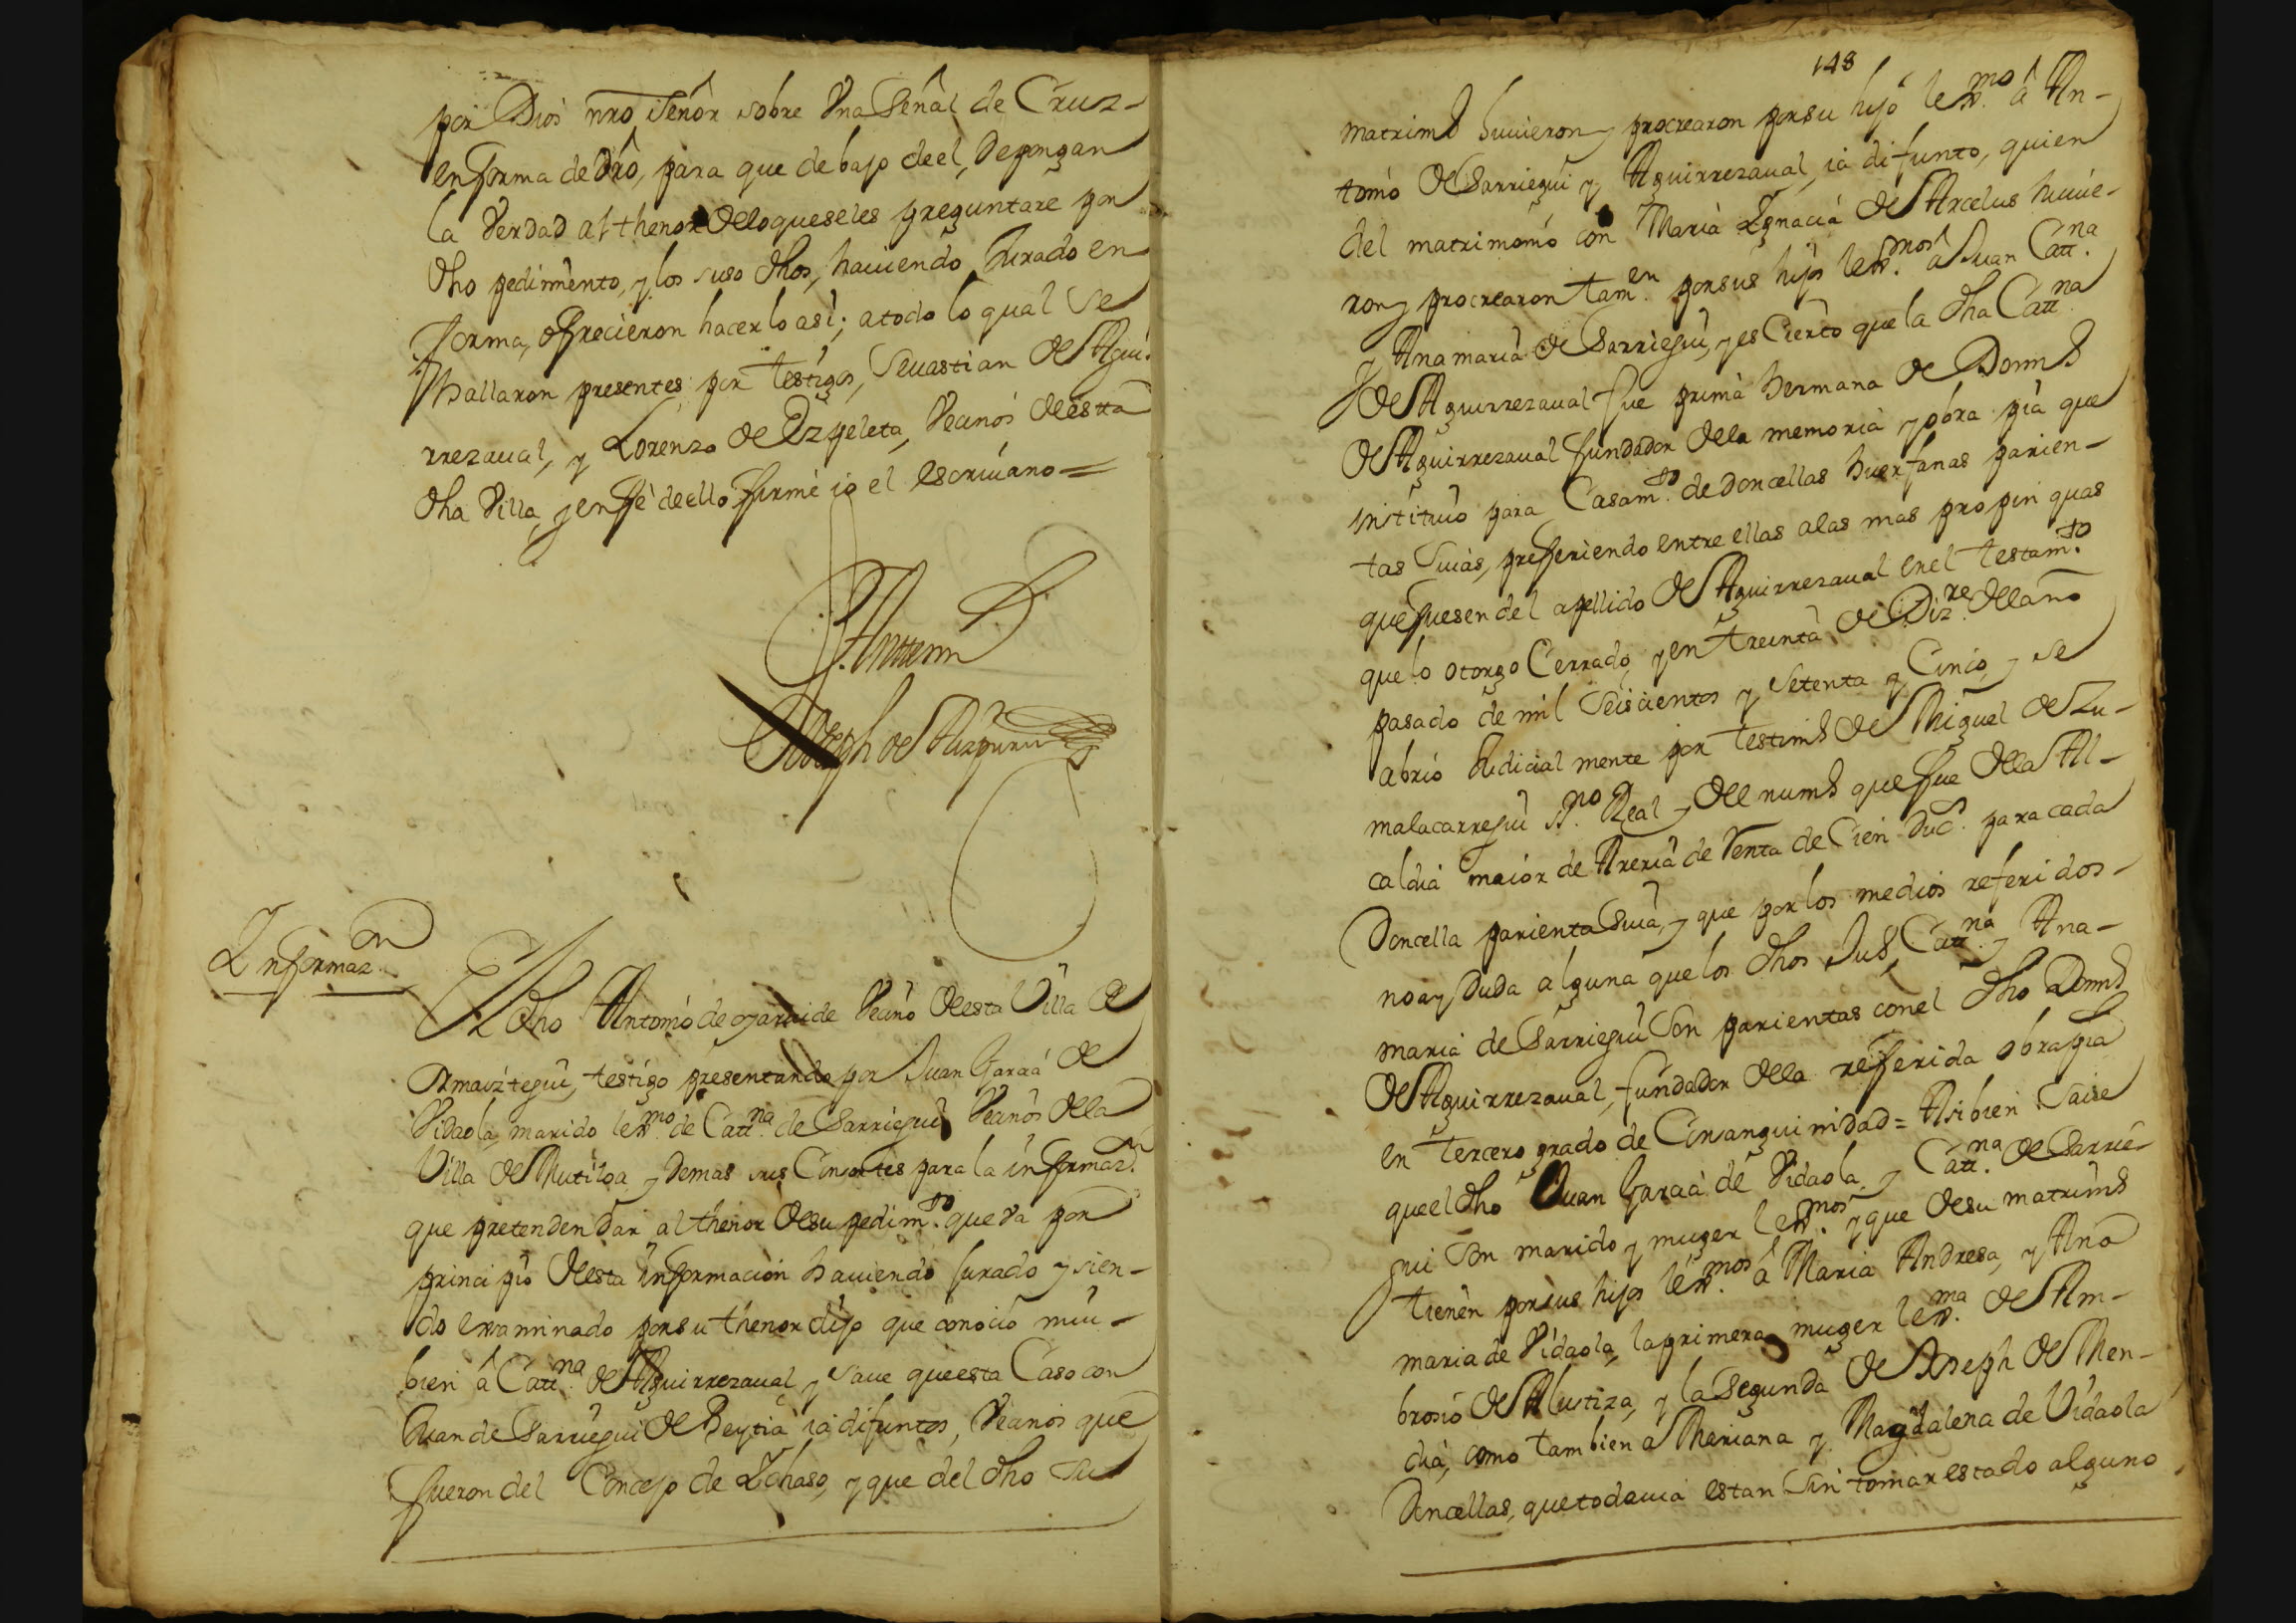 por Dios nro señor sobre Una Señal de Cruz-
en forma de dro, para que debajo de el, depongan
la Verdad al thenor de lo que se les preguntare por
dho pedimento, y los suso dhos, haviendo Jurado en
forma, ofrecieron hacerlo asi; a todo lo qual se
hallaron presentes por testigos, Sevastian de Agui-
rrezaval, y Lorenzo de Ezpeleta, Vecinos de esta
dha Villa, y en fe de ello firme io el escrivano=
Antte mi
Joseph de Aizpuru
Informaz.on
El dho Antonio de oyarvide Vecino de esta Villa de
Ormaiztegui, testigo presentando por Juan Garcia de
Vidaola, marido lexmo. de Cattna. de Sarriegui Vecinos de la
Villa de Mutiloa y demas sus Consortes para la informaz.on
que pretenden dar al thenor de su pedim.to que va por
principio de esta informacion haviendo jurado y sien-
do examinado por su thenor dijo que conocio mui-
bien â Cattna. de Aguirrezaval, y save que esta Caso con
Juan de Sarriegui de Beytia ia difuntos, Vecinos que
fueron del Concejo de Ichaso, y que del dho su
148
matrimo huvieron y procrearon por su hijo lexmo. â An-
tonio de Sarriegui y Aguirrezaval, ia difunto, quien
del matrimonio con Maria Ignacia de Arcelus huvie-
ron y procrearon tam.en por sus hijos lexmos. a Juan Cattna.
y Ana maria de Sarriegui, y es Cierto que la dha Cattna
de Aguirrezaval fue prima hermana de Domo
de Aguirrezaval fundador de la memoria y obra pia que
instituio para Casam.to de doncellas huerfanas parien-
tas suias, prefiriendo entre ellas a las mas propinquas
que fuesen del apellido de Aguirrezaval en el testam.to
que lo otorgo Cerrado, y en treinta de Diz.re del año
pasado de mil Seiscientos y setenta y Cinco, y se
abrio Judicial mente por testimo de Miguel de Zu-
malacarregui ssno. Real y del numo que fue de la Al-
caldia maior de Areria de Renta de Cien duc.s para cada
Doncella parienta Suia, y que por los medios referidos-
no ay Duda alguna que los dhos Juo, Cattna. y Ana-
maria de Sarriegui Son parientas con el dho Domo
de Aguirrezaval, fundador de la referida obra pia
en tercero grado de Consanguinidad = Asibien Save
que el dho Juan Garcia de Vidaola, y Cattna. de Sarrie-
gui Son marido y muger lexmos. y que de su matrimo
tienen por sus hijos lexmos. a Maria Andresa, y Ana
maria de Vidaola, la primera muger lexma. de Am-
brosio de Alustiza, y la Segunda de Joseph de Men-
dia, como tambien a Mariana y Magdalena de Vidaola
Doncellas, que todavia estan Sin tomar estado alguno